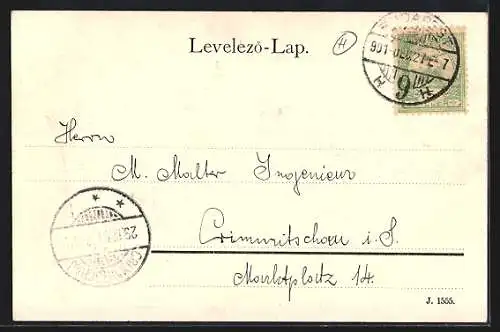 Levelező-Lap.
H
901
Herrn
M. Malter Ingenieur
Crimmitschau i. S.
Marktplatz 14.
J. 1555.